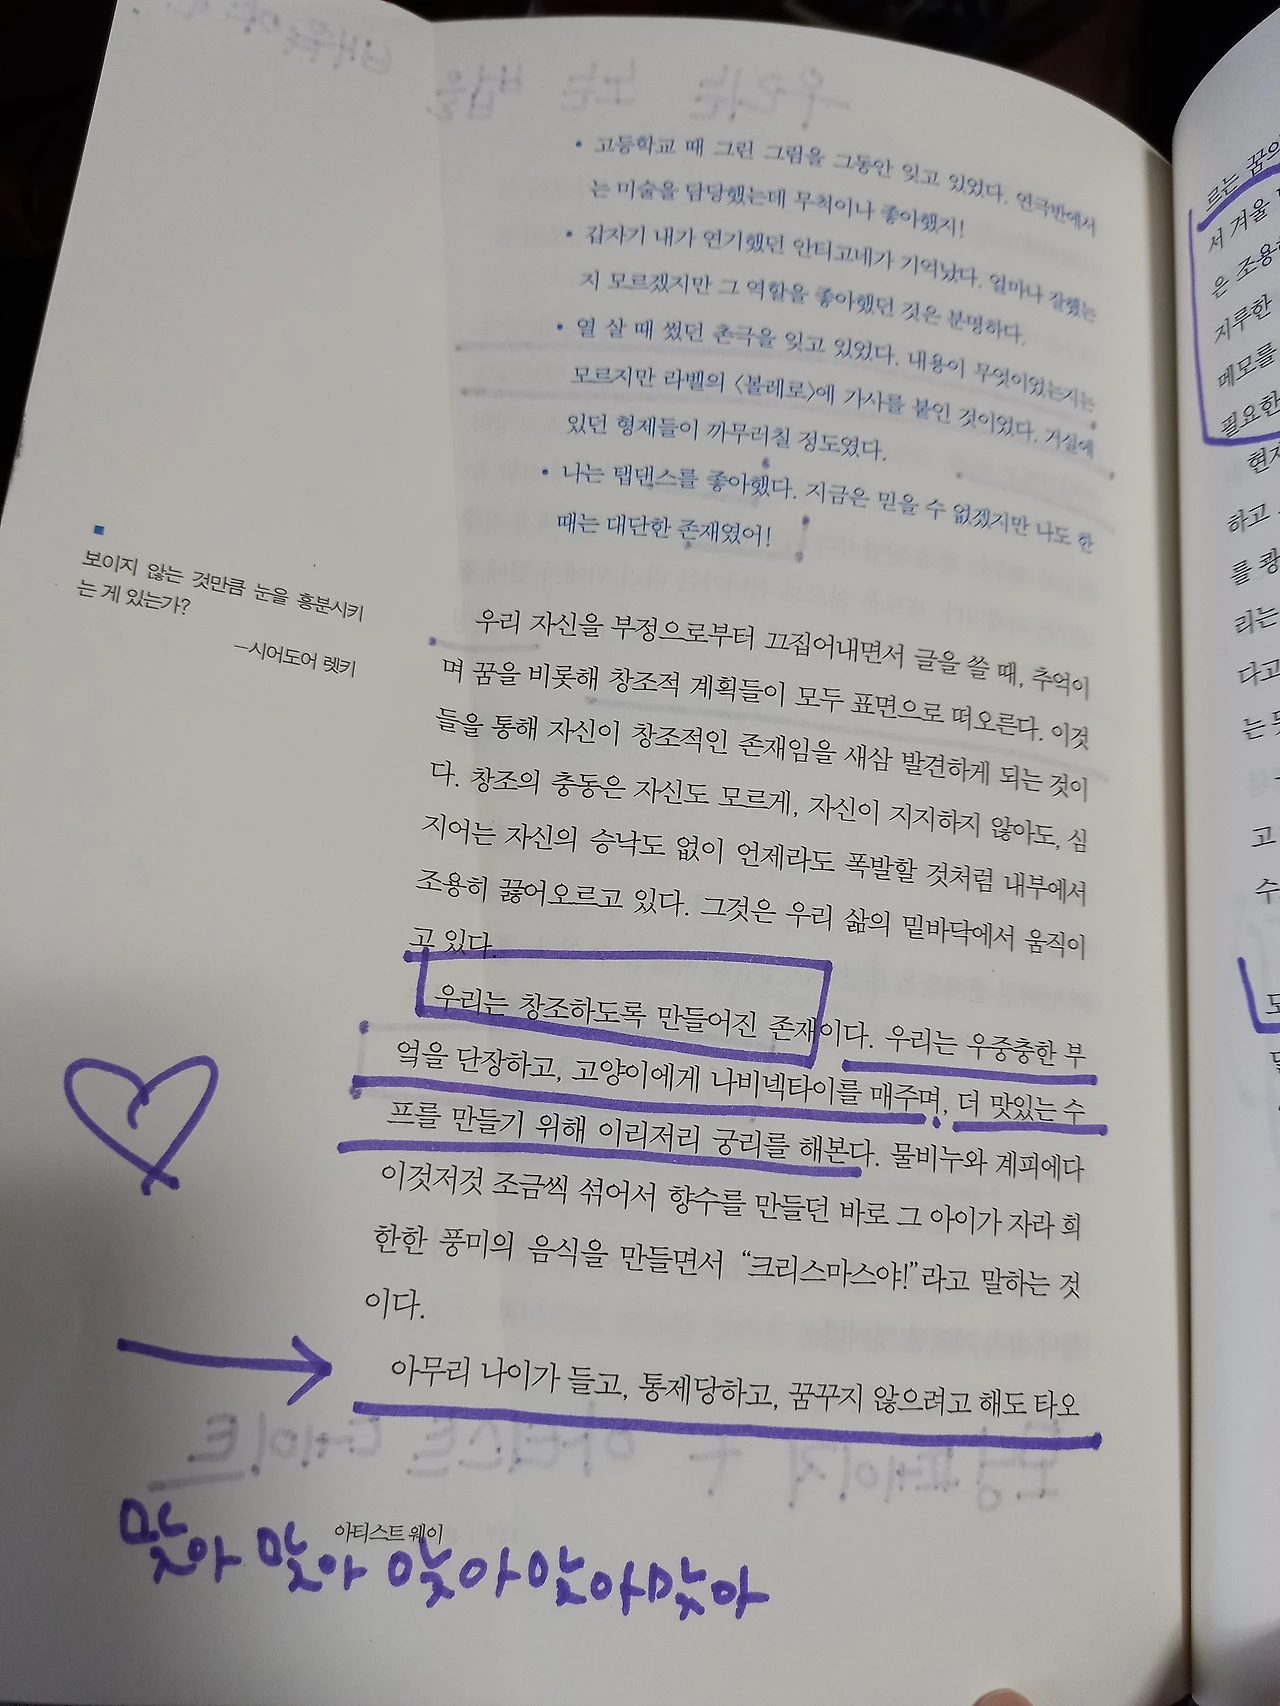 • 고등학교 때 그린 그림을 그동안 잊고 있었다. 연극반에서
는 미술을 담당했는데 무척이나 좋아했지!
• 갑자기 내가 연기했던 안티고네가 기억났다. 얼마나 잘했는
지 모르겠지만 그 역할을 좋아했던 것은 분명하다.
• 열 살 때 썼던 촌극을 잊고 있었다. 내용이 무엇이었는지는
모르지만 라벨의 〈볼레로〉에 가사를 붙인 것이었다. 거실에
있던 형제들이 까무러칠 정도였다.
• 나는 탭댄스를 좋아했다. 지금은 믿을 수 없겠지만 나도 한
때는 대단한 존재였어!
보이지 않는 것만큼 눈을 흥분시키
는 게 있는가?
–시어도어 렛키
우리 자신을 부정으로부터 끄집어내면서 글을 쓸 때, 추억이
며 꿈을 비롯해 창조적 계획들이 모두 표면으로 떠오른다. 이것
들을 통해 자신이 창조적인 존재임을 새삼 발견하게 되는 것이
다. 창조의 충동은 자신도 모르게, 자신이 지지하지 않아도, 심
지어는 자신의 승낙도 없이 언제라도 폭발할 것처럼 내부에서
조용히 끓어오르고 있다. 그것은 우리 삶의 밑바닥에서 움직이
고 있다.
우리는 창조하도록 만들어진 존재이다. 우리는 우중충한 부
엌을 단장하고, 고양이에게 나비넥타이를 매주며, 더 맛있는 수
프를 만들기 위해 이리저리 궁리를 해본다. 물비누와 계피에다
이것저것 조금씩 섞어서 향수를 만들던 바로 그 아이가 자라 희
한한 풍미의 음식을 만들면서 “크리스마스야!”라고 말하는 것
이다.
아무리 나이가 들고, 통제당하고, 꿈꾸지 않으려고 해도 타오
아티스트 웨이
맞아 맞아 맞아 맞아 맞아
르는 꿈의
서 겨울
은 조용히
지루한
메모를
필요한
현자
하고
를 쾅
리는
다고
는
고
수